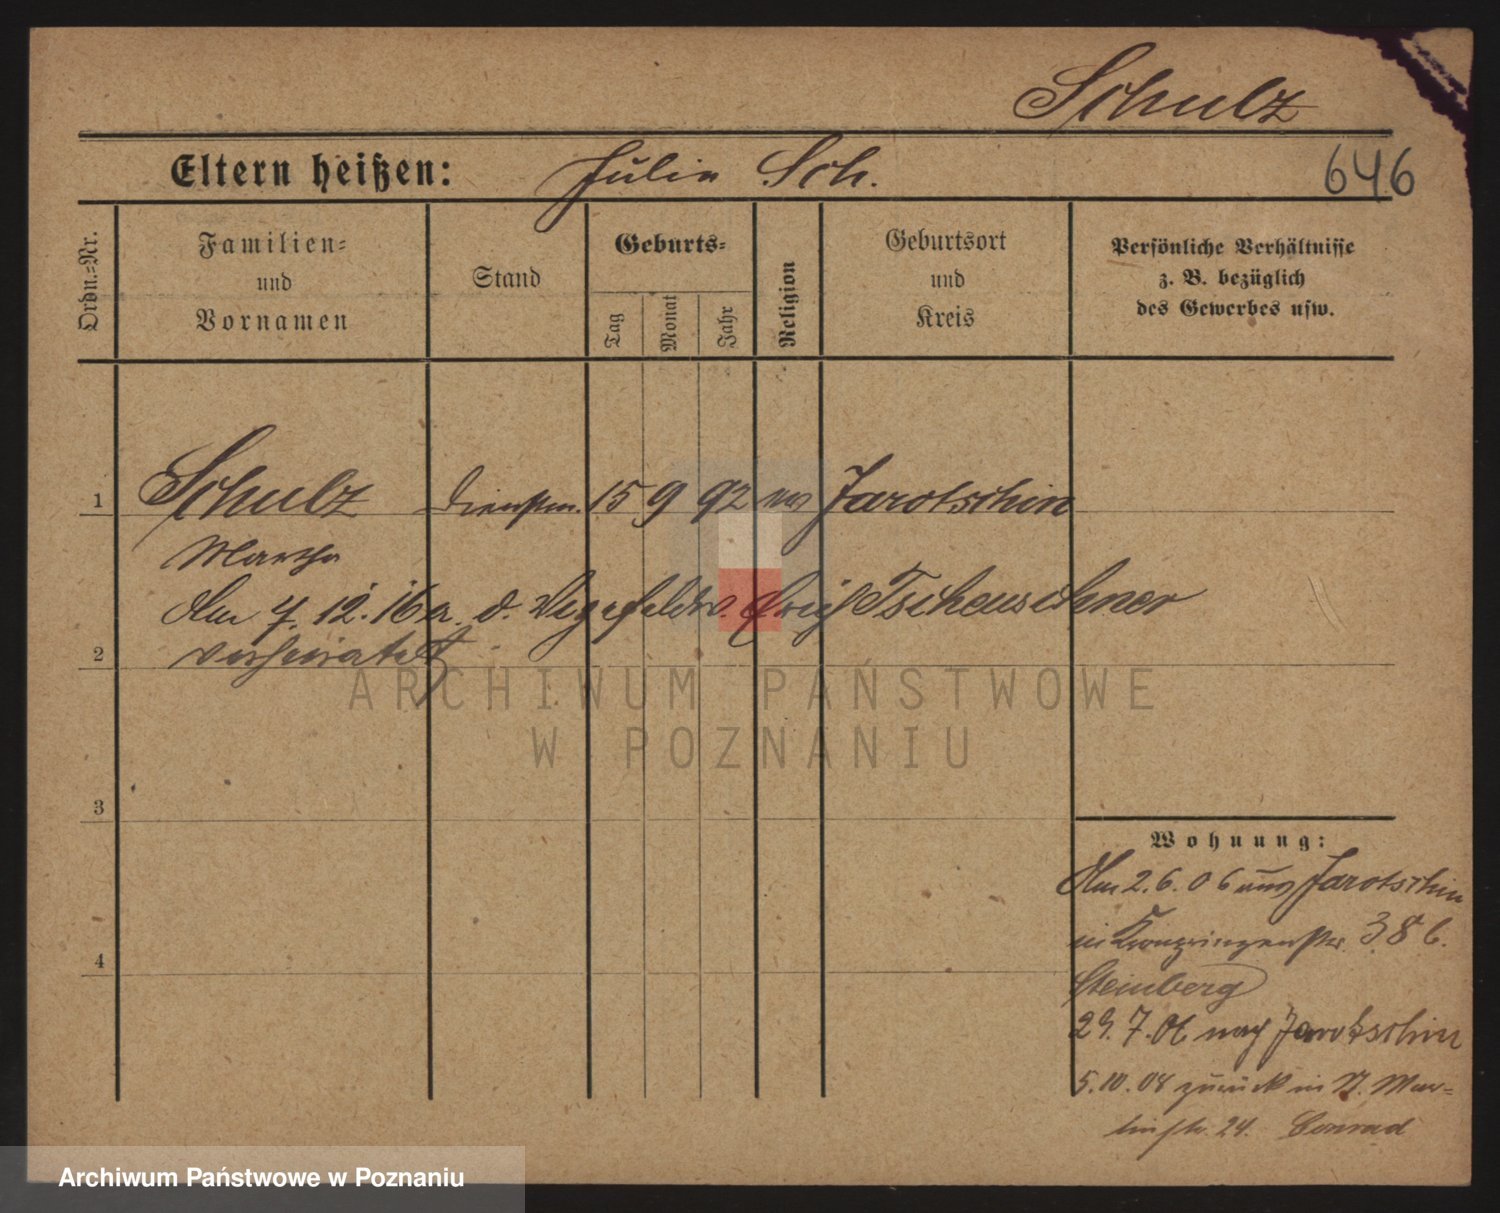 Schulz
Eltern heißen: Julie Sch.
646
Ordn.-Nr.
Familien-
und
Vornamen
Stand
Geburts-
Tag
Monat
Jahr
Religion
Geburtsort
und
Kreis
Persönliche Verhältnisse
z. B. bezüglich
des Gewerbes usw.
1 Schulz Dienstm. 15 9 92 ev Jarotschin
Martha
Am 7. 12. 16 m. d. Erich Tscheuschner
2 verheiratet
ARCHIWUM PAŃSTWOWE
W POZNANIU
3
Wohnung:
Am 2. 6. 06 aus Jarotschin
in Kronprinzenstr. 38 b.
4
Steinberg
29. 7. 06 nach Jarotschin
5. 10. 08 zurück in St. Mar-
tinstr. 24. Conrad
Archiwum Państwowe w Poznaniu